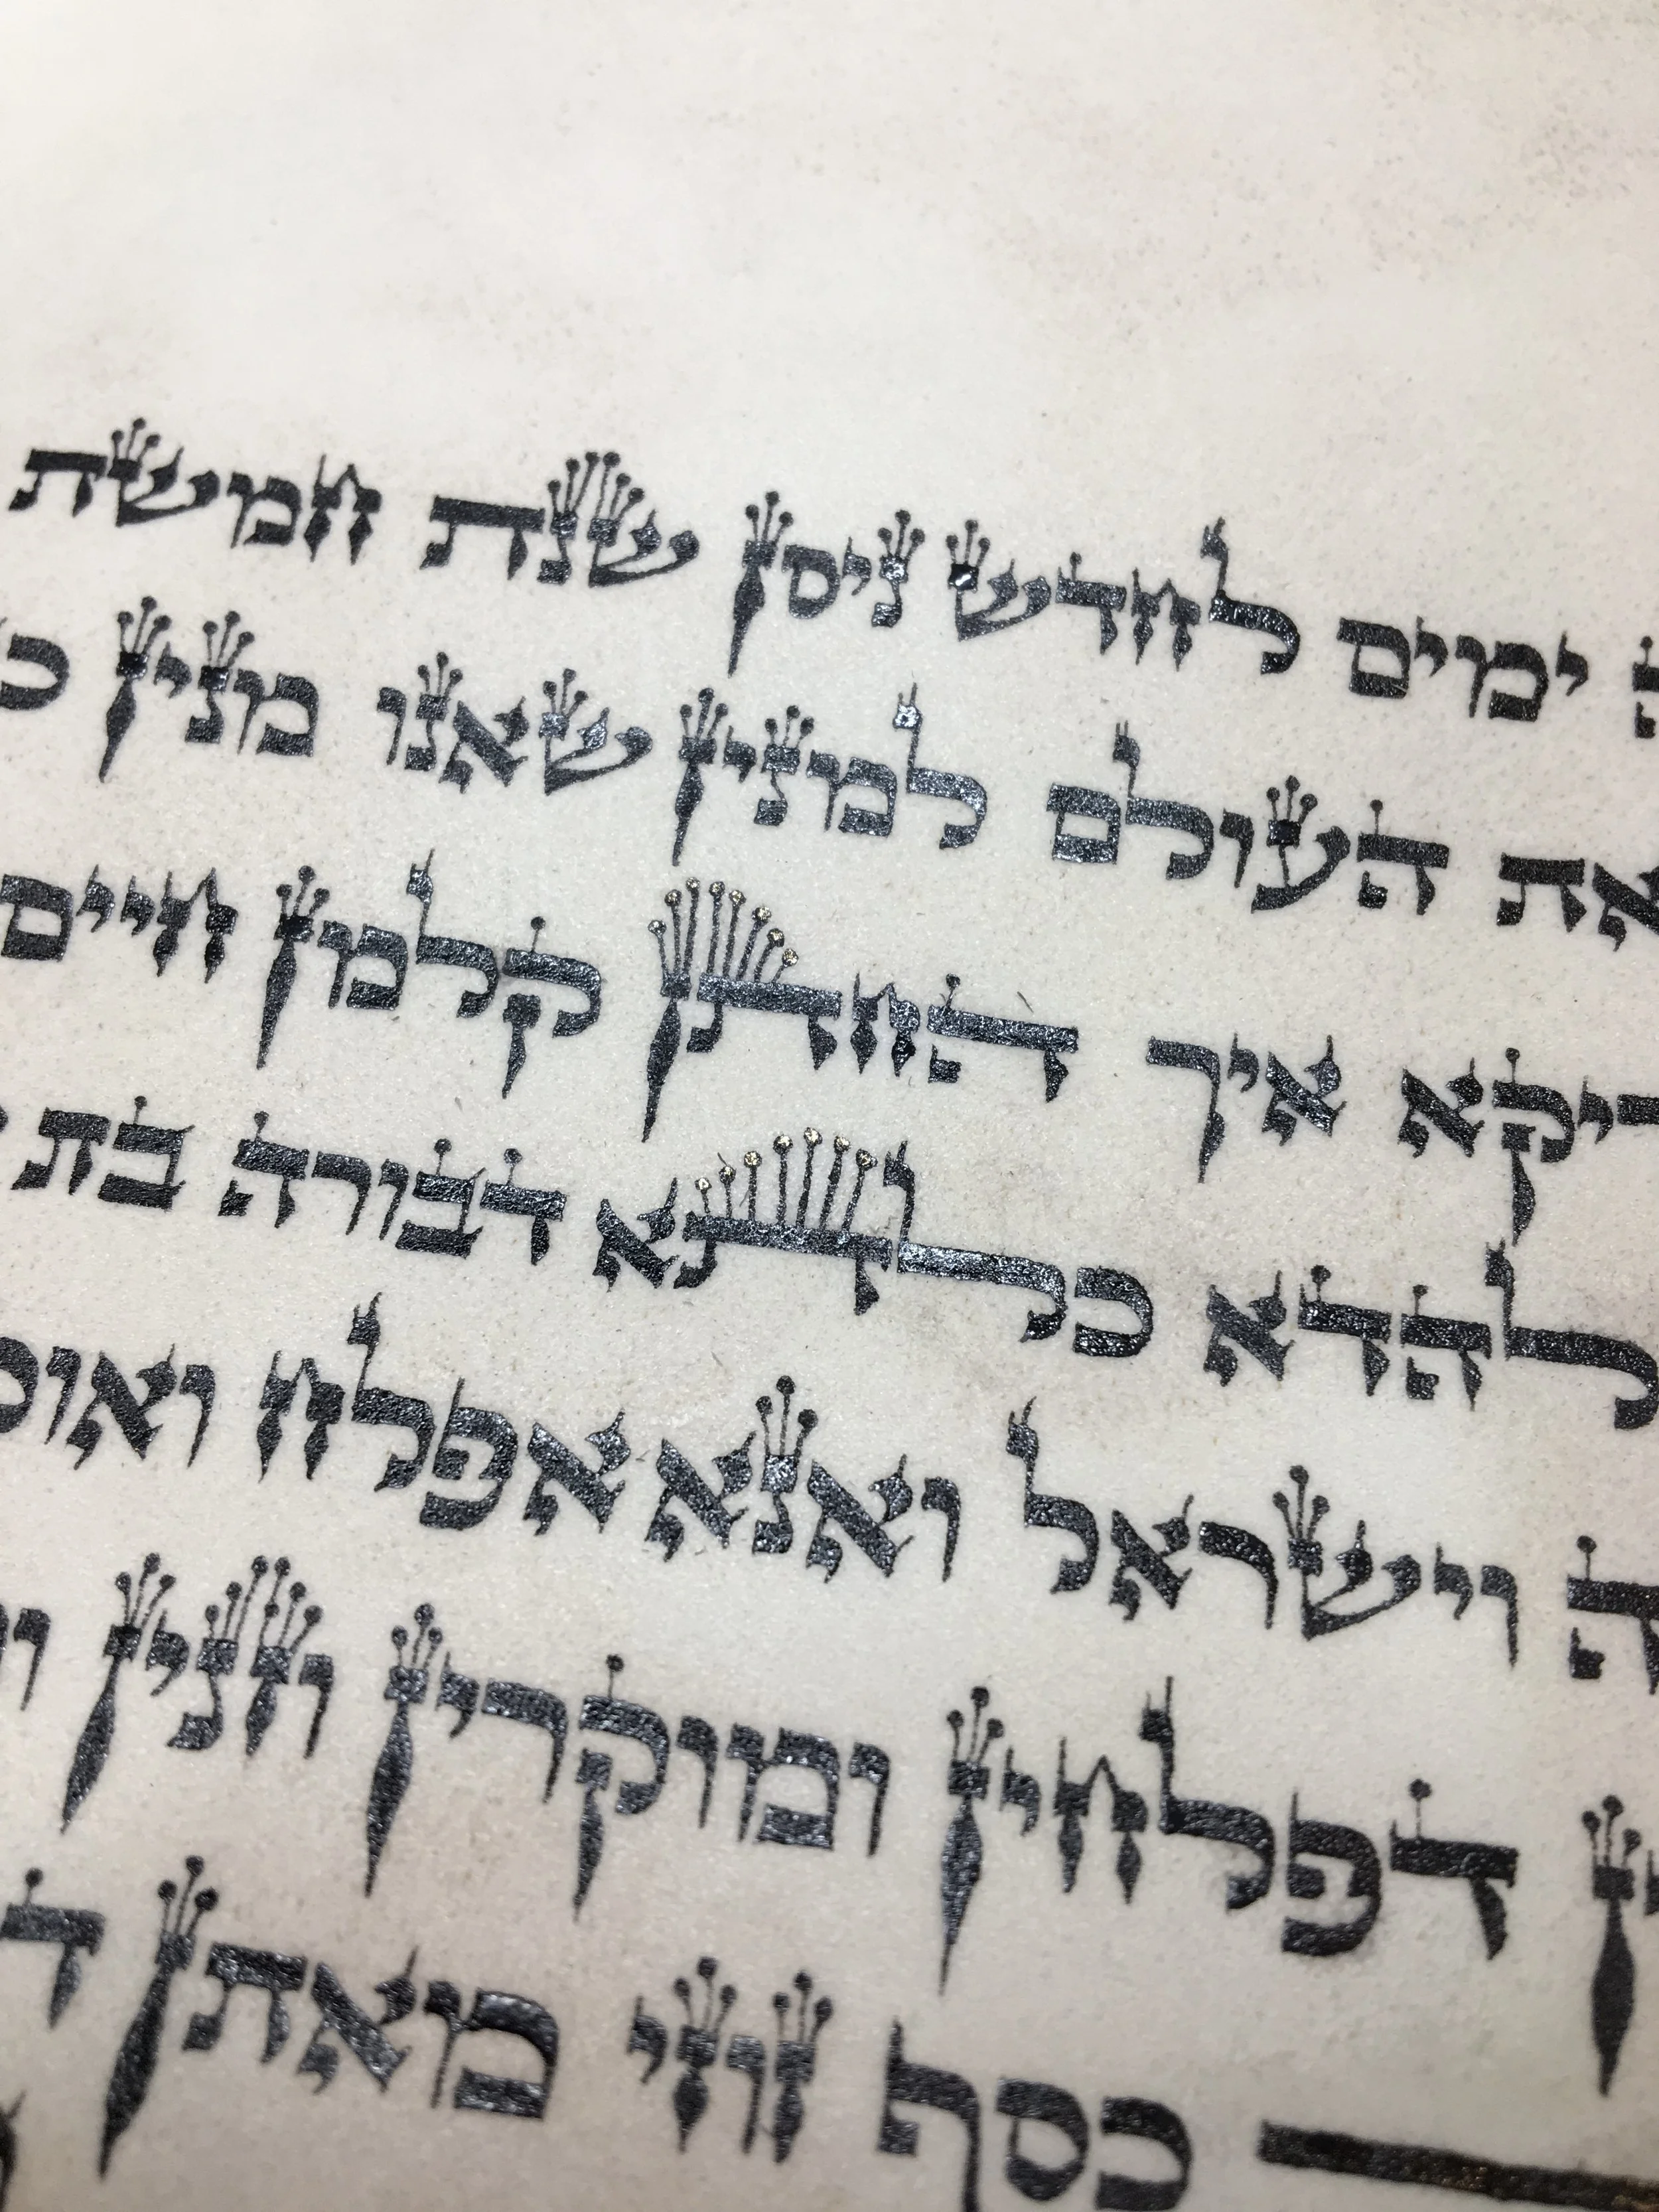 ימים לחדש ניסן שנת חמשת
את העולם למנין שאנו מנין
איך החתן קלמן חיים
להדא כלתא דבורה בת
וישראל ואנא אפלח
דפלחין ומוקרין וזנין
כסף זוזי מאתן